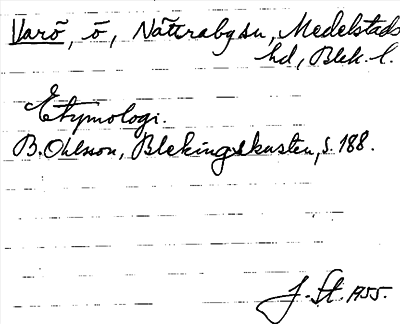 Varö, ö, Nättraby sn, Medelstads
hd, Blek. l.
Etymologi.
B. Ohlsson, Blekingskusten, s. 188.
J. St. 1955.